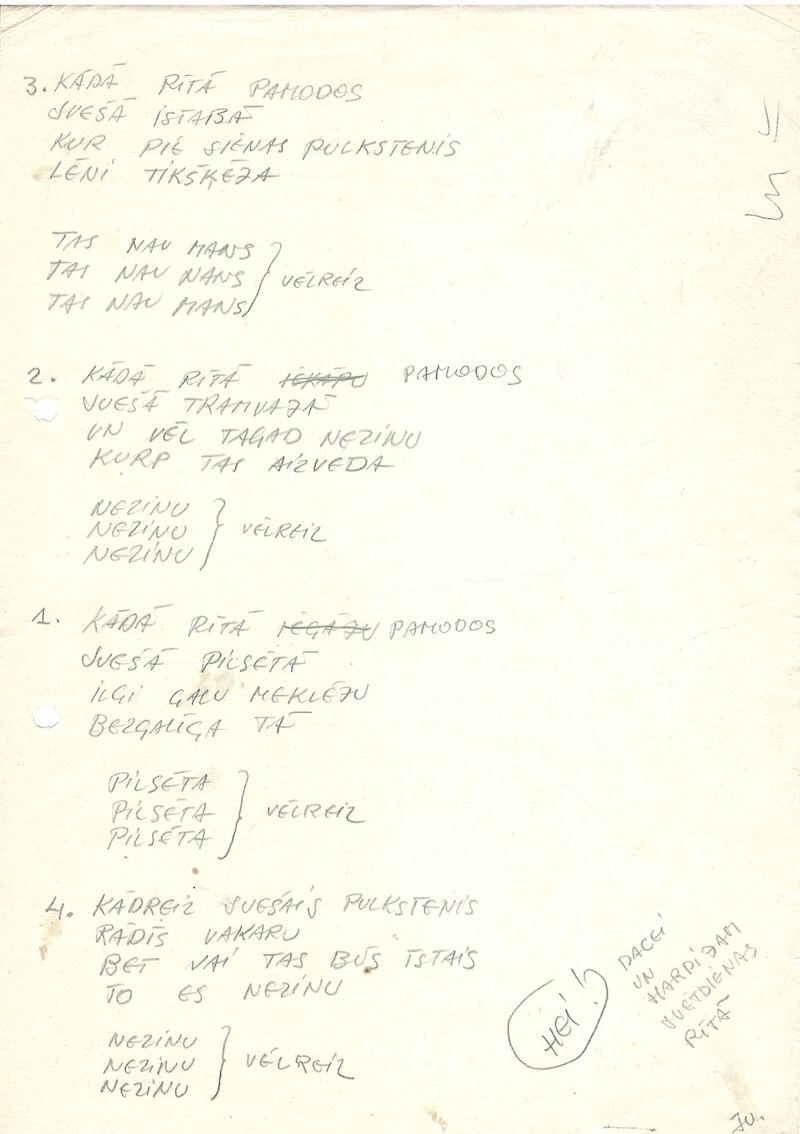 3. KĀDĀ RĪTĀ PAMODOS
SVEŠĀ ISTABĀ
KUR PIE SIENAS PULKSTENIS
LĒNI TIKŠĶĒJA
TAS NAU MANS
TAS NAU NANS } VĒLREIZ
TAS NAU MANS
2. KĀDĀ RĪTĀ IEKĀPU PAMODOS
SVEŠĀ TRAMVAJĀ
UN VĒL TAGAD NEZINU
KURP TAS AIZVEDA
NEZINU
NEZINU } VĒLREIZ
NEZINU
1. KĀDĀ RĪTĀ IEGĀJU PAMODOS
SVEŠĀ PILSĒTĀ
ILGI GALU MEKLĒJU
BEZGALĪGA TĀ
PILSĒTA
PILSĒTA } VĒLREIZ
PILSĒTA
4. KĀDREIZ SVEŠAIS PULKSTENIS
RĀDĪS VAKARU
BET VAI TAS BŪS ĪSTAIS
TO ES NEZINU
NEZINU
NEZINU } VĒLREIZ
NEZINU
HEI!
DACEI
UN
HARDIJAM
SVĒTDIENAS
RĪTĀ